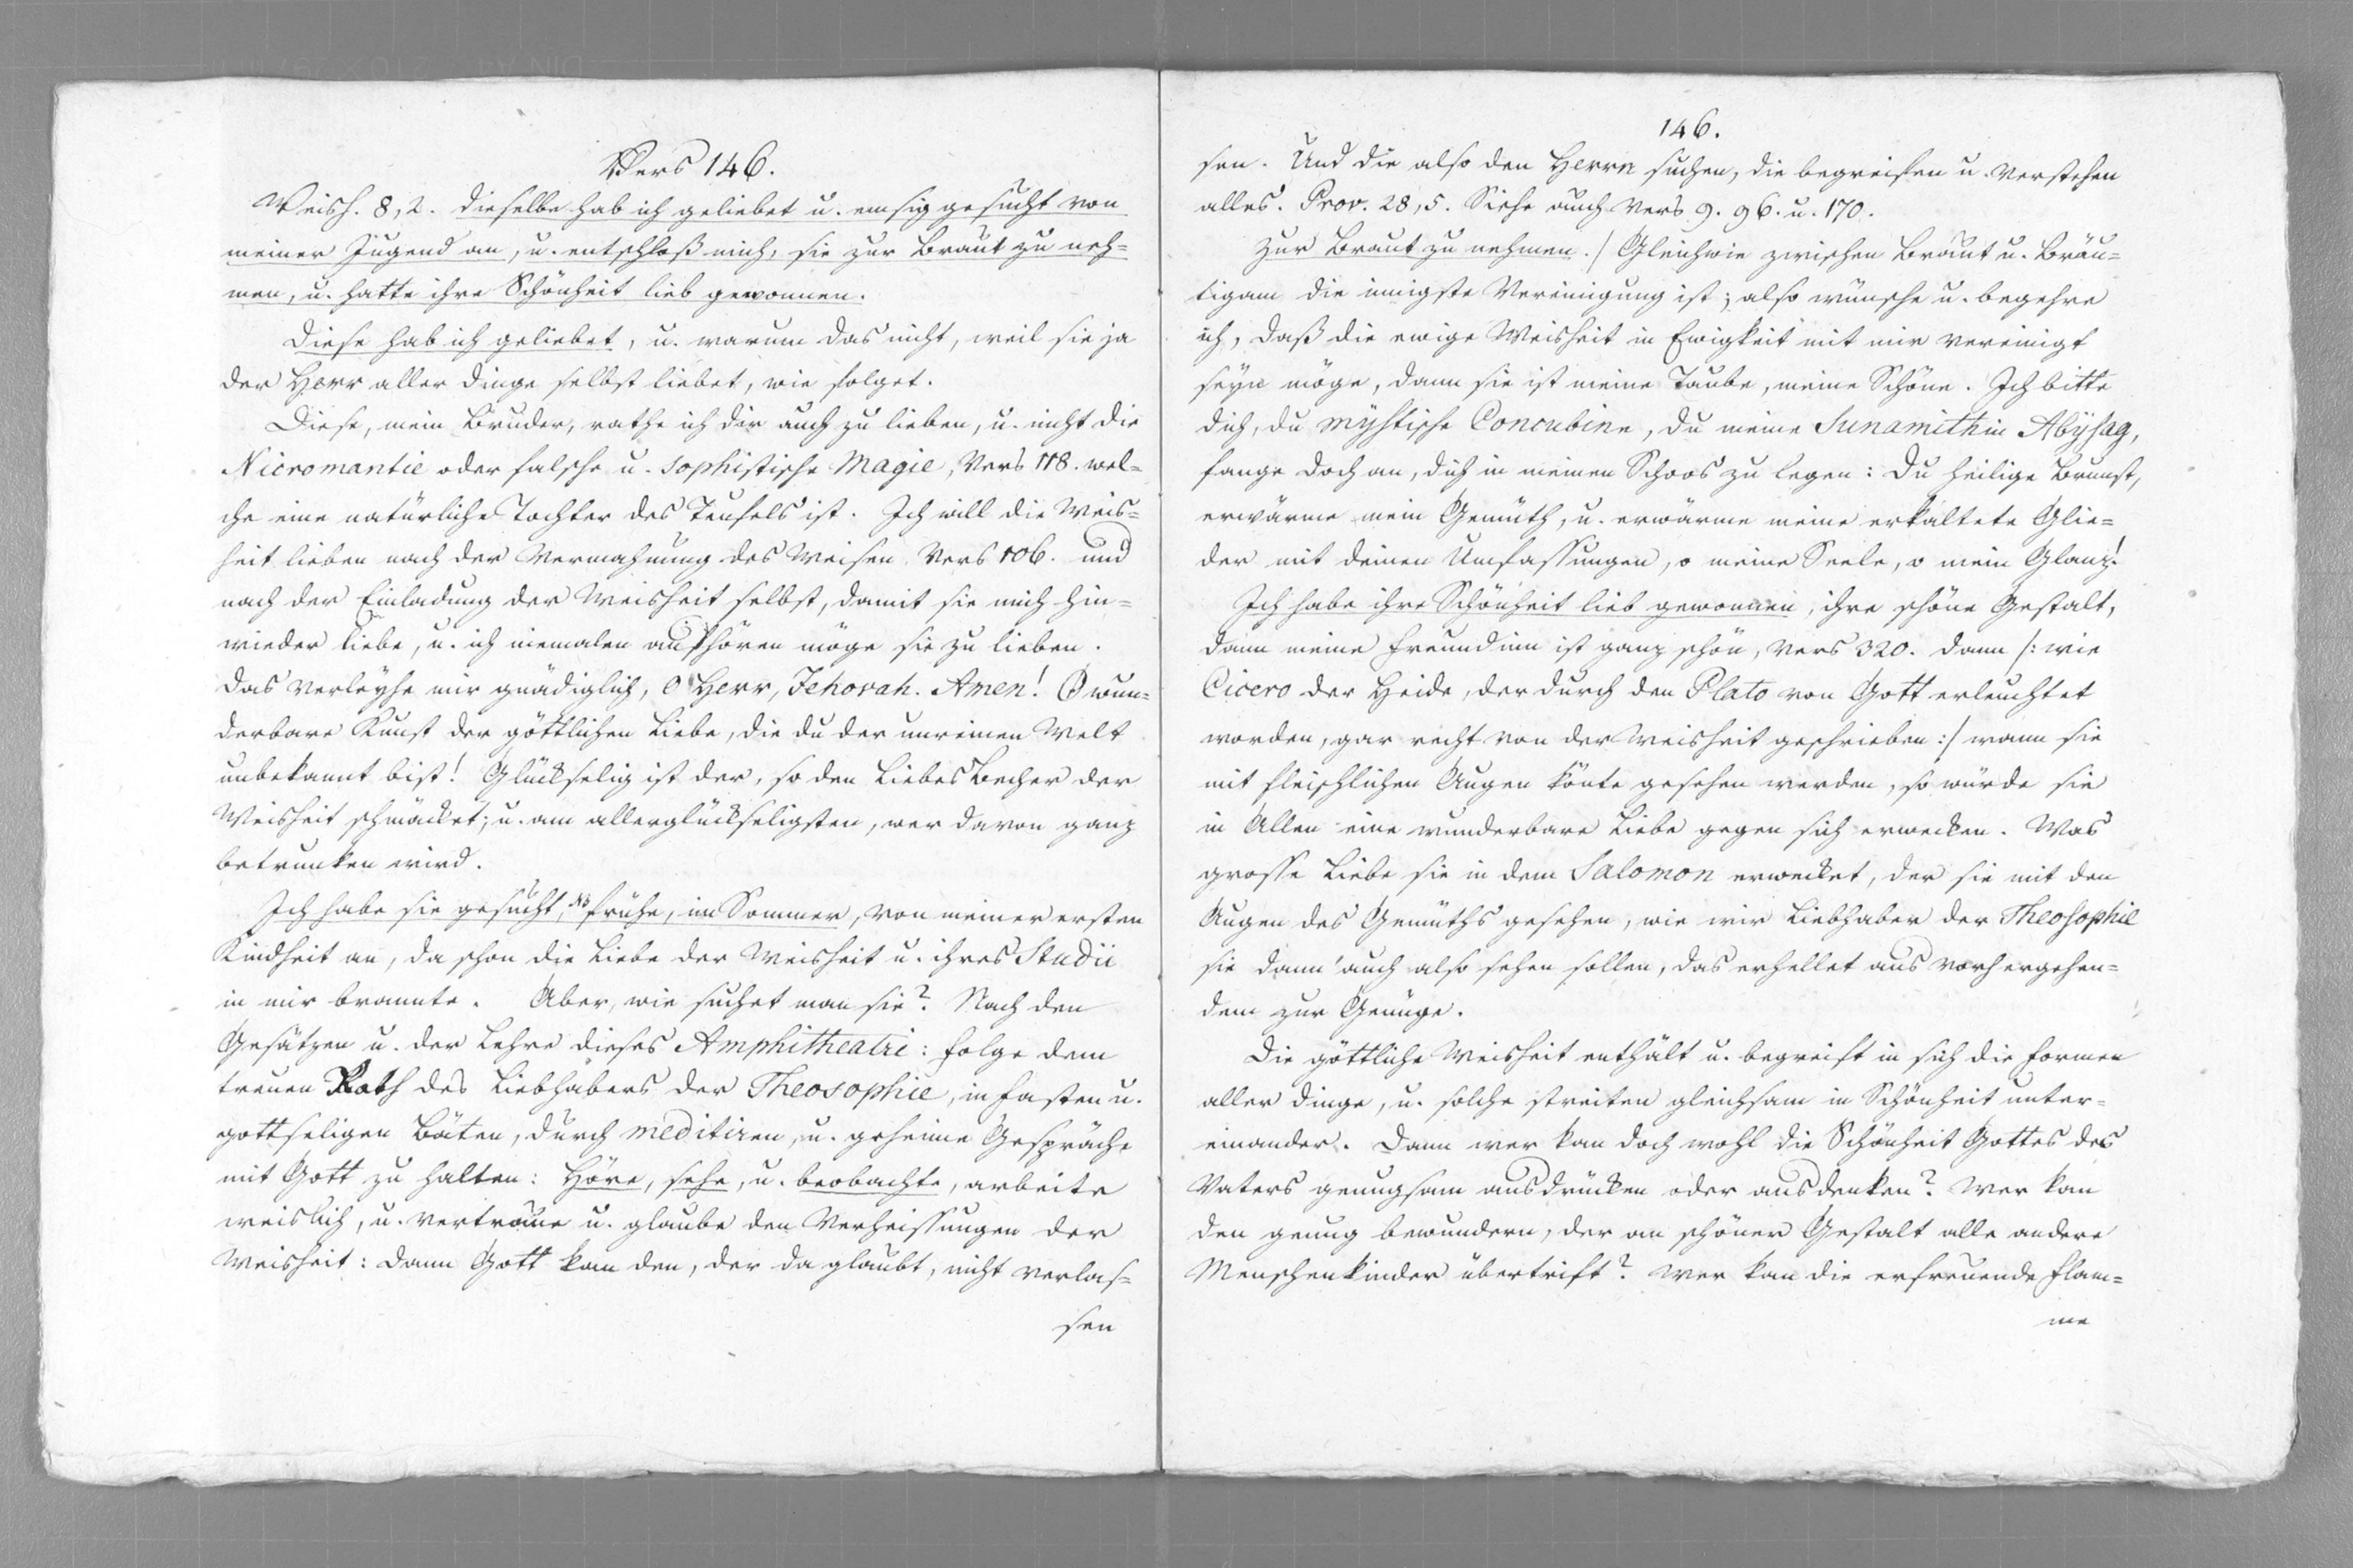 Vers 146.
Weish. 8,2. Dieselbe hab ich geliebet u. emsig gesucht von
meiner Jugend an, u. entschloß mich, sie zur Braut zu neh=
men, u. hatte ihre Schönheit lieb gewonnen.
Diese hab ich geliebet, u. warum das nicht, weil sie ja
der Herr aller Dinge selbst liebet, wie folget.
Diese, mein Bruder, rathe ich dir auch zu lieben, u. nicht die
Nicromantie oder falsche u. sophistische Magie, Vers 118. wel=
che eine natürliche Tochter des Teufels ist. Ich will die Weis=
heit lieben nach der Vermahnung des Weisen Vers 106. und
nach der Einladung der Weisheit selbst, damit sie mich hin=
wieder liebe, u. ich niemalen aufhören möge sie zu lieben.
Das verleyhe mir gnädiglich, O Herr, Jehovah. Amen! O wun=
derbare Kunst der göttlichen Liebe, die du der unreinen Welt
unbekannt bist! Glückselig ist der, so den Liebes Becher der
Weisheit schmäcket; u. am allerglückseligsten, wer davon ganz
betrunken wird.
Ich habe sie gesucht, NB frühe, im Sommer, von meiner ersten
Kindheit an, da schon die Liebe der Weisheit u. ihres Studii
in mir brannte. Aber, wie suchet man sie? Nach den
Gesätzen u. der Lehre dieses Amphitheatri: folge dem
treuen Rath des Liebhabers der Theosophie, in Fasten u.
gottseligen Bäten, durch meditiren, u. geheime Gespräche
mit Gott zu halten: Höre, sehe, u. beobachte, arbeite
weislich, u. vertraue u. glaube den Verheissungen der
Weisheit: dann Gott kan den, der da glaubt, nicht verlas=
sen
146.
sen. Und die also den Herrn suchen, die begreifen u. verstehen
alles. Prov. 28,5. Siehe auch Vers 9. 96. u. 170.
Zur Braut zu nehmen./ Gleichwie zwischen Braut u. Bräu=
tigam die innigste Vereinigung ist; also wünsche u. begehre
ich, daß die ewige Weisheit in Ewigkeit mit mir vereinigt
seyn möge, dann sie ist meine Taube, meine Schöne. Ich bitte
dich, du mystische Concubine, du meine Sunamithin Abysag,
fange doch an, dich in meinen Schoos zu legen: Du heilige Brunst,
erwärme mein Gemüth, u. erwärme meine erkaltete Glie=
der mit deinen Umfassungen, o meine Seele, o mein Glanz!
Ich habe ihre Schönheit lieb gewonnen, ihre schöne Gestalt,
dann meine Freundinn ist ganz schön, Vers 320. dann /: wie
Cicero der Heide, der durch den Plato von Gott erleuchtet
worden, gar recht von der Weisheit geschrieben :/ wann sie
mit fleischlichen Augen könte gesehen werden, so würde sie
in Allen eine wunderbare Liebe gegen sich erwecken. Was
grosse Liebe sie in dem Salomon erwecket, der sie mit den
Augen des Gemüths gesehen, wie wir Liebhaber der Theosophie
sie dann auch also sehen sollen, das erhellet aus vorhergehen=
dem zur Genüge.
Die göttliche Weisheit enthält u. begreift in sich die Formen
aller Dinge, u. solche streiten gleichsam in Schönheit unter=
einander. Dann wer kan doch wohl die Schönheit Gottes des
Vaters genugsam ausdrücken oder ausdenken? Wer kan
den genug bewundern, der an schöner Gestalt alle andere
Menschenkinder übertrift? Wer kan die erfreuende Flam=
me